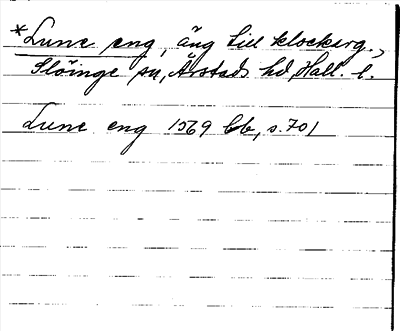 *Lune eng, äng till klockarg.,
Slöinge sn, Årstads hd, Hall. l.
Lune eng 1569 Cb, s. 701